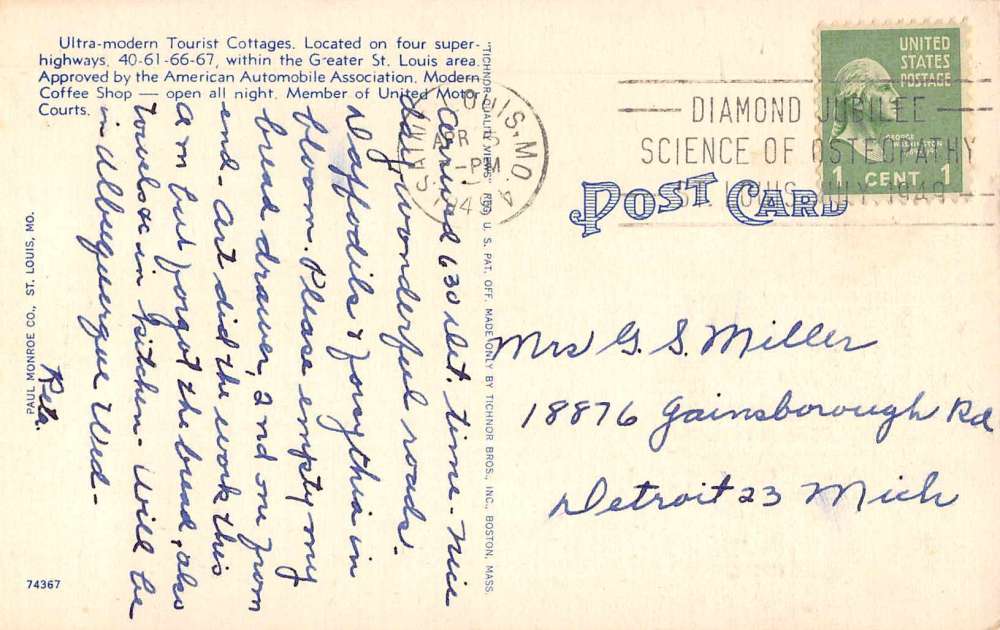 Ultra-modern Tourist Cottages. Located on four super-
highways, 40-61-66-67, within the Greater St. Louis area.
Approved by the American Automobile Association. Modern
Coffee Shop — open all night. Member of United Motor
Courts.
Arrived 630 Det. time - nice
day, wonderful roads.
Daffodils & forsythia in
bloom. Please empty my
bread drawer, 2nd one from
end. Art did the work this
am but forgot the bread, also
towels in kitchen - Will be
in Albuquerque Wed -
PAUL MONROE CO., ST. LOUIS, MO.
74367
"TICHNOR QUALITY VIEWS" REG. U. S. PAT. OFF. MADE ONLY BY TICHNOR BROS., INC., BOSTON, MASS.
ST. LOUIS, MO.
APR 5
PM
1949
DIAMOND JUBILEE
SCIENCE OF OSTEOPATHY
ST. LOUIS, JULY 1949
UNITED
STATES
POSTAGE
GEORGE
WASHINGTON
1 CENT 1
POST CARD
Mrs G. S. Miller
18876 Gainsborough Rd
Detroit 23 Mich